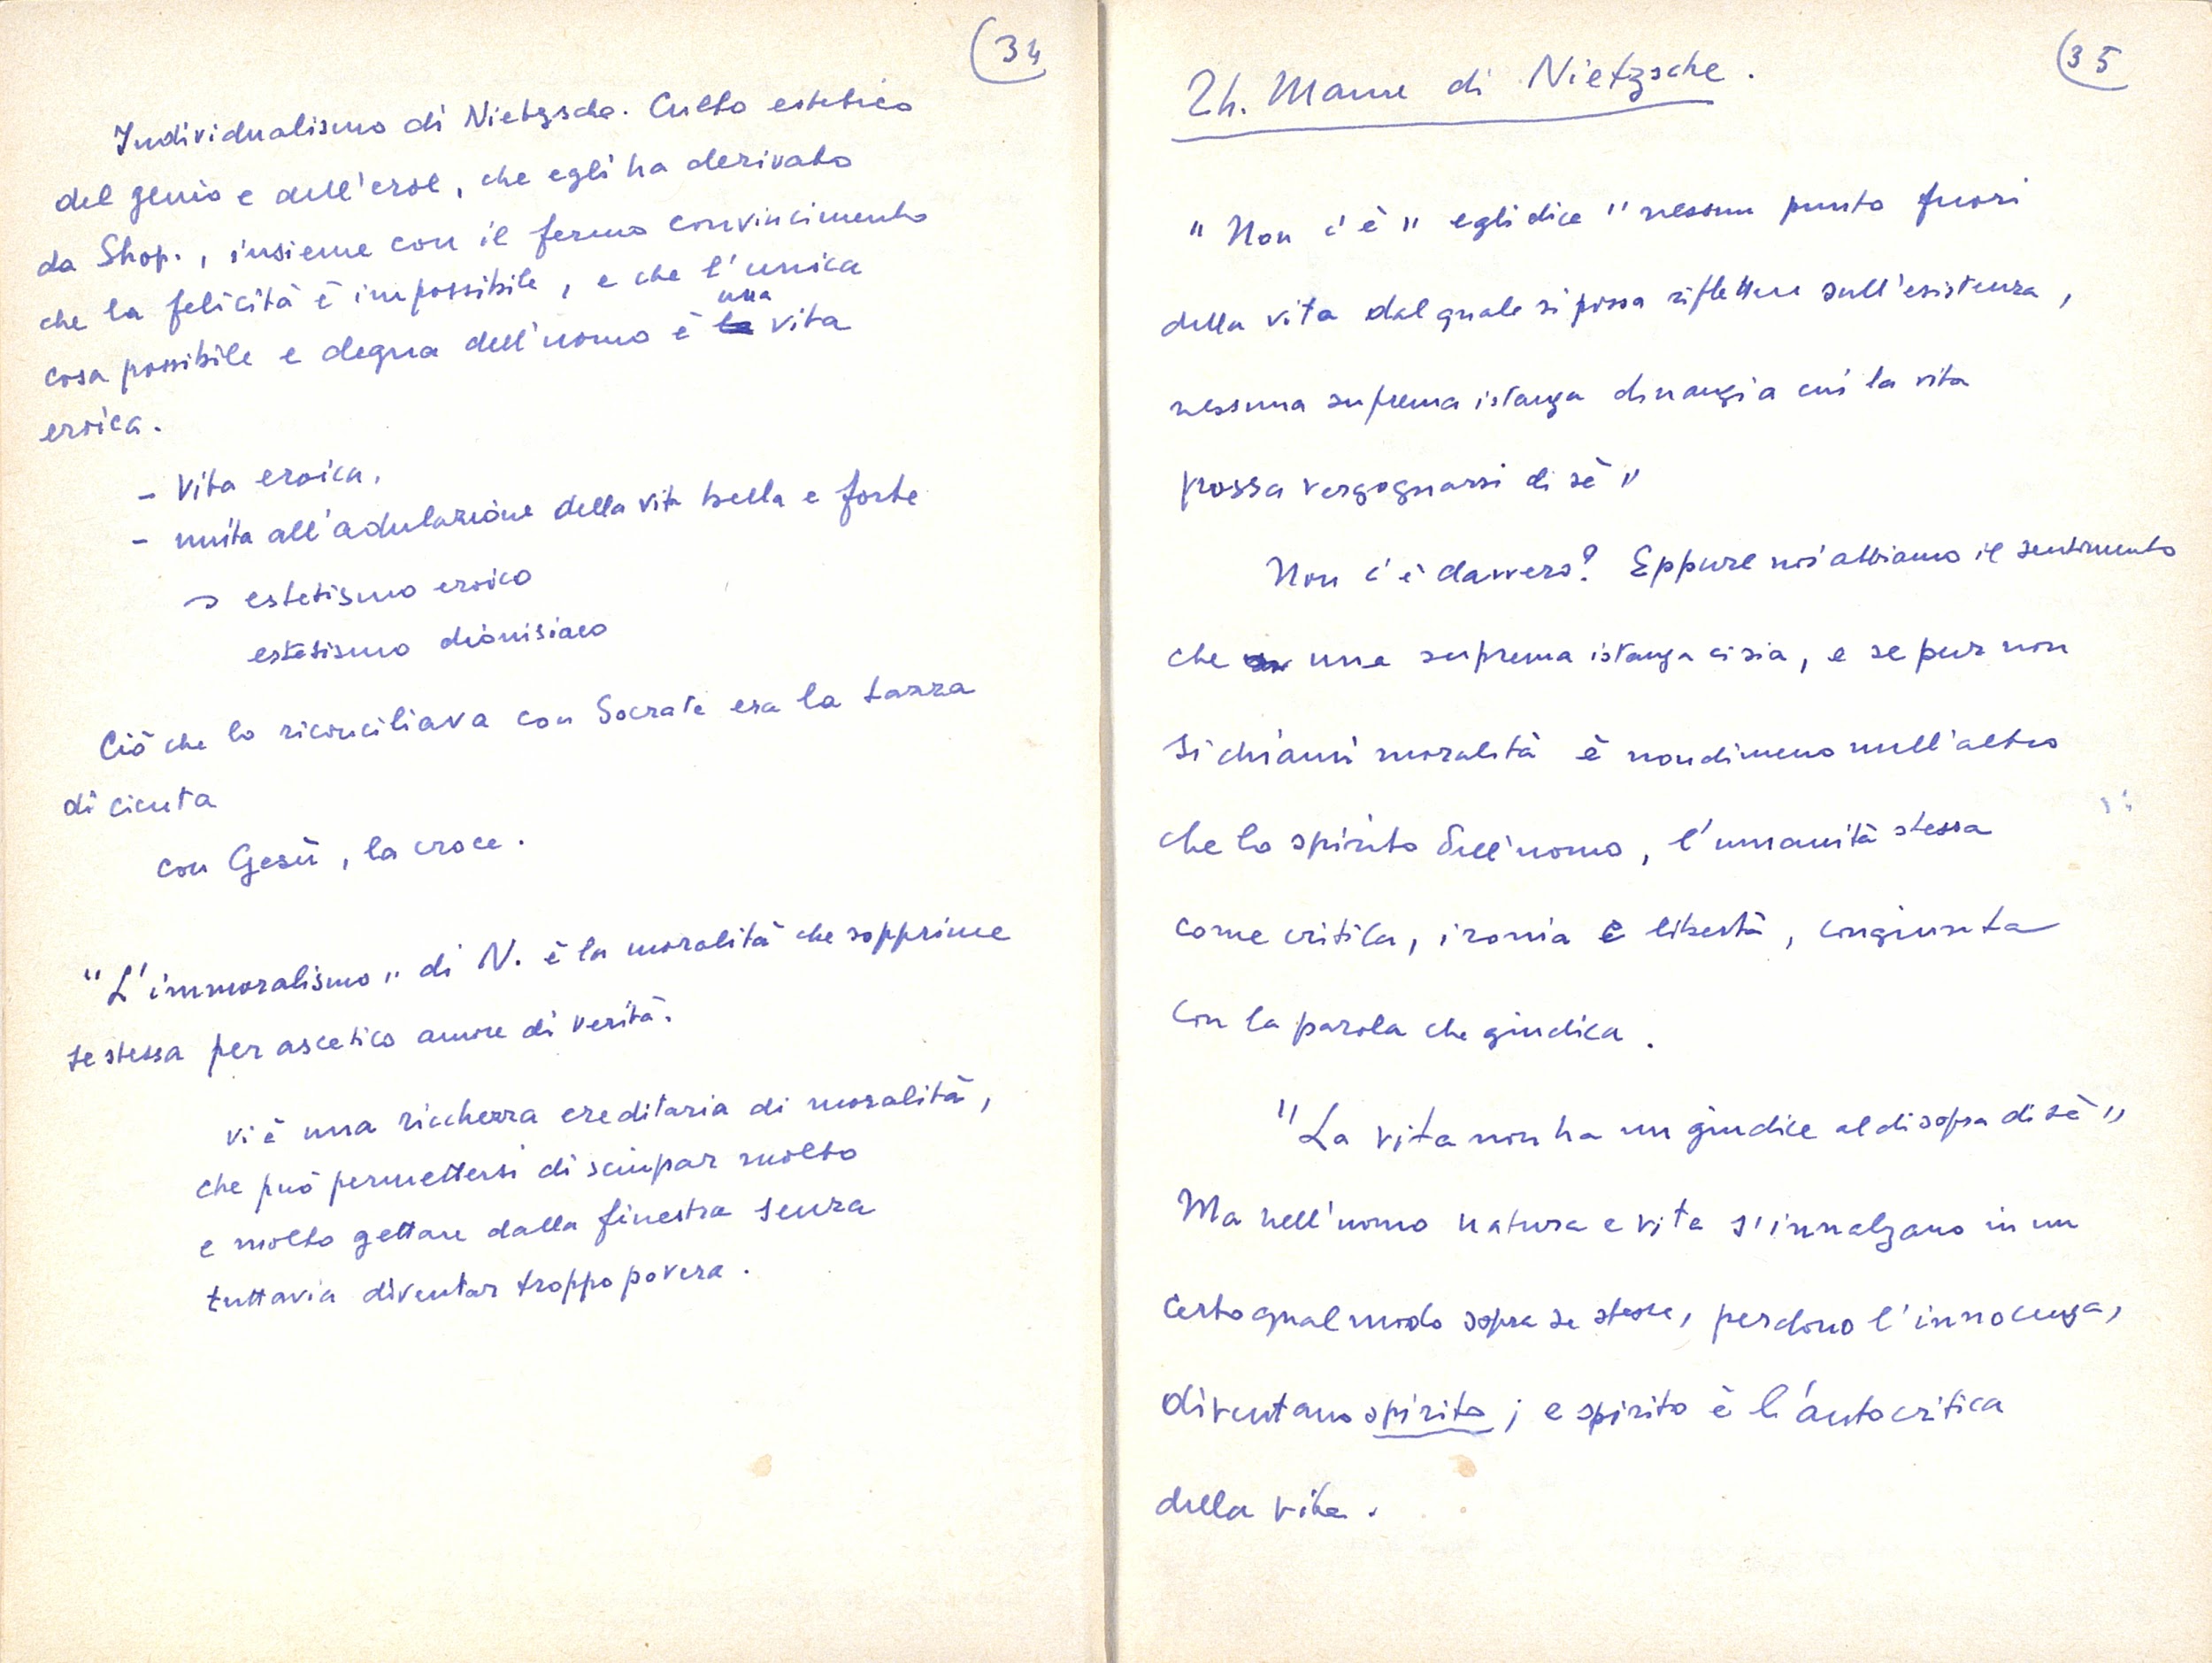 34
Individualismo di Nietzsche. Culto estetico
del genio e dell'eroe, che egli ha derivato
da Shop., insieme con il fermo convincimento
che la felicità è impossibile, e che l'unica
cosa possibile e degna dell'uomo è una vita
eroica.
- Vita eroica,
- unita all'adulazione della vita bella e forte
→ estetismo eroico
estetismo dionisiaco
Ciò che lo riconciliava con Socrate era la tazza
di cicuta
con Gesù, la croce.
"L'immoralismo" di N. è la moralità che sopprime
se stessa per ascetico amore di verità.
vi è una ricchezza ereditaria di moralità,
che può permettersi di sciupar molto
e molto gettare dalla finestra senza
tuttavia diventar troppo povera.
35
Th. Mann di Nietzsche.
"Non c'è" egli dice "nessun punto fuori
della vita dal quale si possa riflettere sull'esistenza,
nessuna suprema istanza dinanzi a cui la vita
possa vergognarsi di sè"
Non c'è davvero? Eppure noi abbiamo il sentimento
che una suprema istanza ci sia, e se pur non
si chiami moralità è nondimeno null'altro
che lo spirito dell'uomo, l'umanità stessa
come critica, ironia e libertà, congiunta
con la parola che giudica.
"La vita non ha un giudice al di sopra di sè"
Ma nell'uomo natura e vita s'innalzano in un
certo qual modo sopra se stesse, perdono l'innocenza,
diventano spirito; e spirito è l'autocritica
della vita.